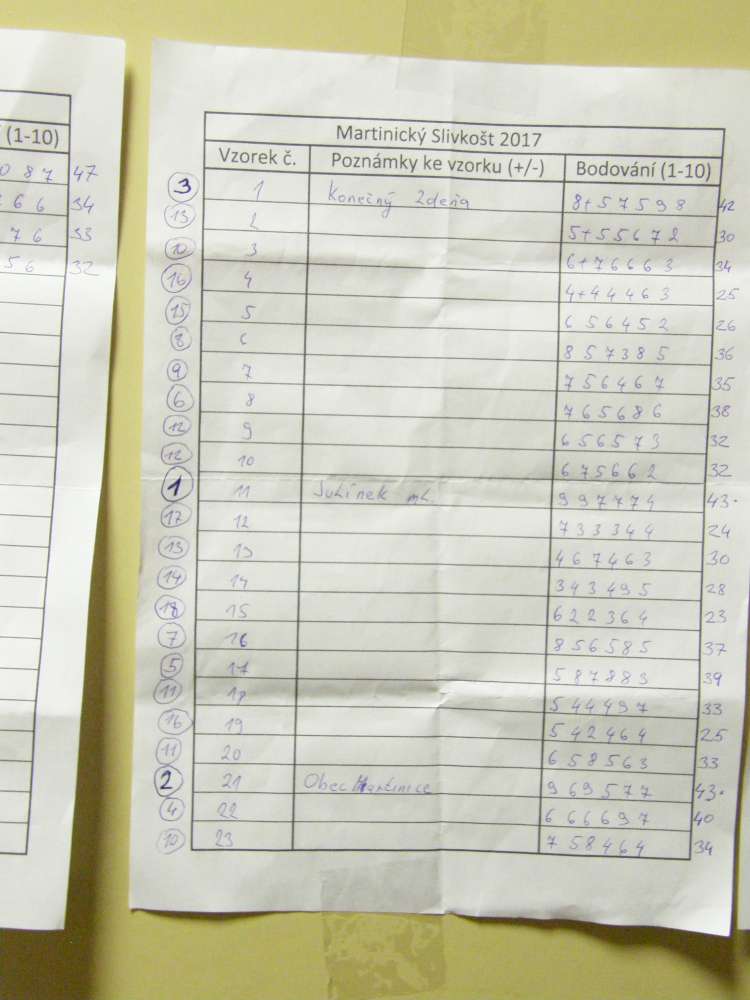 (1-10)
0 8 7 47
6 6 34
7 6 33
5 6 32
Martinický Slivkošt 2017
Vzorek č. Poznámky ke vzorku (+/-) Bodování (1-10)
3 1 Konečný Zdeňa 8+57598 42
13 2 5+55672 30
10 3 6+76663 34
16 4 4+44463 25
15 5 656452 26
8 6 857385 36
9 7 756467 35
6 8 765686 38
12 9 656573 32
12 10 675662 32
1 11 Juřínek ml. 997774 43.
17 12 733344 24
13 13 467463 30
14 14 343495 28
18 15 622364 23
7 16 856585 37
5 17 587883 39
11 18 544497 33
16 19 542464 25
11 20 658563 33
2 21 Obec Martinice 969577 43.
4 22 666697 40
10 23 758464 34